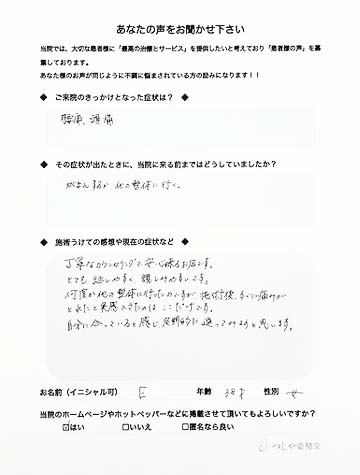 あなたの声をお聞かせ下さい
当院では、大切な患者様に「最高の治療とサービス」を提供したいと考えており「患者様の声」を募
集しております。
あなた様のお声が同じように不調に悩まされている方の励みになります！！
◆ ご来院のきっかけとなった症状は？ ◆
腰痛、頭痛
◆ その症状が出たときに、当院に来る前まではどうしていましたか？ ◆
がまんするか 他の整体に行く。
◆ 施術うけての感想や現在の症状など ◆
丁寧なカウンセリングで安心出来るお店です。
とても話しやすく、親しみやすいです。
何度か他の整体に行ったのですが 施術後、すぐに痛みが
とれたと実感できたのは ここだけです。
自分に合っていると感じ 定期的に 通ってみますと思います。
お名前（イニシャル可） E 年齢 38才 性別 女
当院のホームページやホットペッパーなどに掲載させて頂いてもよろしいですか？
☑はい □いいえ □匿名なら良い
つじや姿勢堂